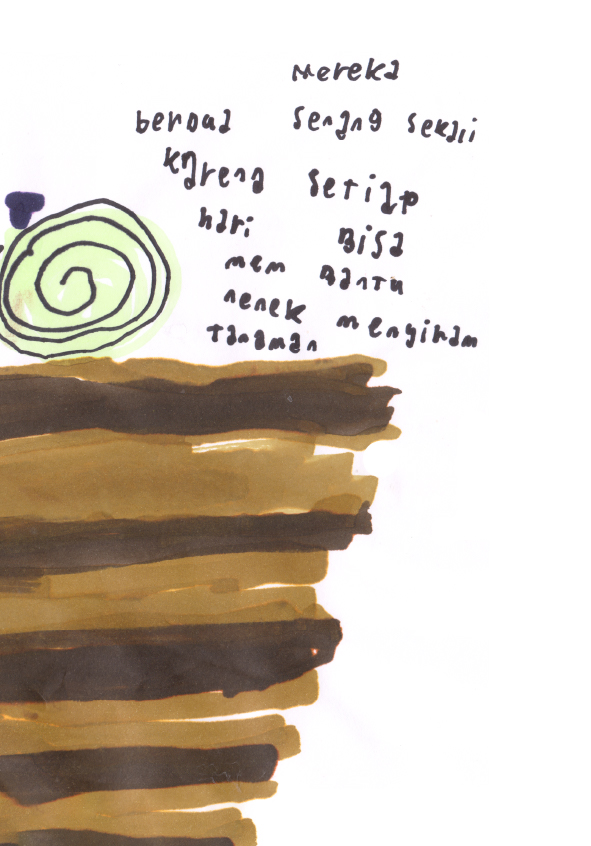 Mereka
berdua senang sekali
karena setiap
hari Bisa
mem Bantu
nenek menyiram
tanaman